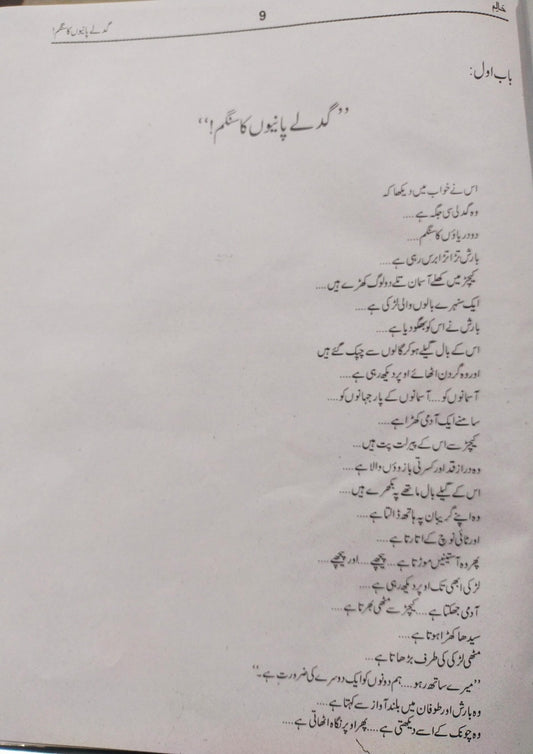 حالم
9
گدلے پانیوں کا سنگم!
باب اول:
’’گدلے پانیوں کا سنگم!‘‘
اس نے خواب میں دیکھا کہ
وہ گدلی سی جگہ ہے....
دو دریاؤں کا سنگم....
بارش تڑاتڑ برس رہی ہے....
کیچڑ میں کھلے آسمان تلے دو لوگ کھڑے ہیں....
ایک سنہرے بالوں والی لڑکی ہے....
بارش نے اس کو بھگو دیا ہے....
اس کے بال گیلے ہو کر گالوں سے چپک گئے ہیں
اور وہ گردن اٹھائے اوپر دیکھ رہی ہے....
آسمانوں کو.... آسمانوں کے پار جہانوں کو....
سامنے ایک آدمی کھڑا ہے....
کیچڑ سے اس کے پیر لت پت ہیں....
وہ دراز قد اور کسرتی بازوؤں والا ہے....
اس کے گیلے بال ماتھے پہ بکھرے ہیں....
وہ اپنے گریبان پہ ہاتھ ڈالتا ہے....
اور ٹائی نوچ کے اتارتا ہے....
پھر وہ آستینیں موڑتا ہے.... پیچھے.... اور پیچھے....
لڑکی ابھی تک اوپر دیکھ رہی ہے....
آدمی جھکتا ہے.... کیچڑ سے مٹھی بھرتا ہے....
سیدھا کھڑا ہوتا ہے....
مٹھی لڑکی کی طرف بڑھاتا ہے....
’’میرے ساتھ رہو.... ہم دونوں کو ایک دوسرے کی ضرورت ہے۔‘‘
وہ بارش اور طوفان میں بلند آواز سے کہتا ہے....
وہ چونک کے اسے دیکھتی ہے.... پھر اوپر نگاہ اٹھاتی ہے....